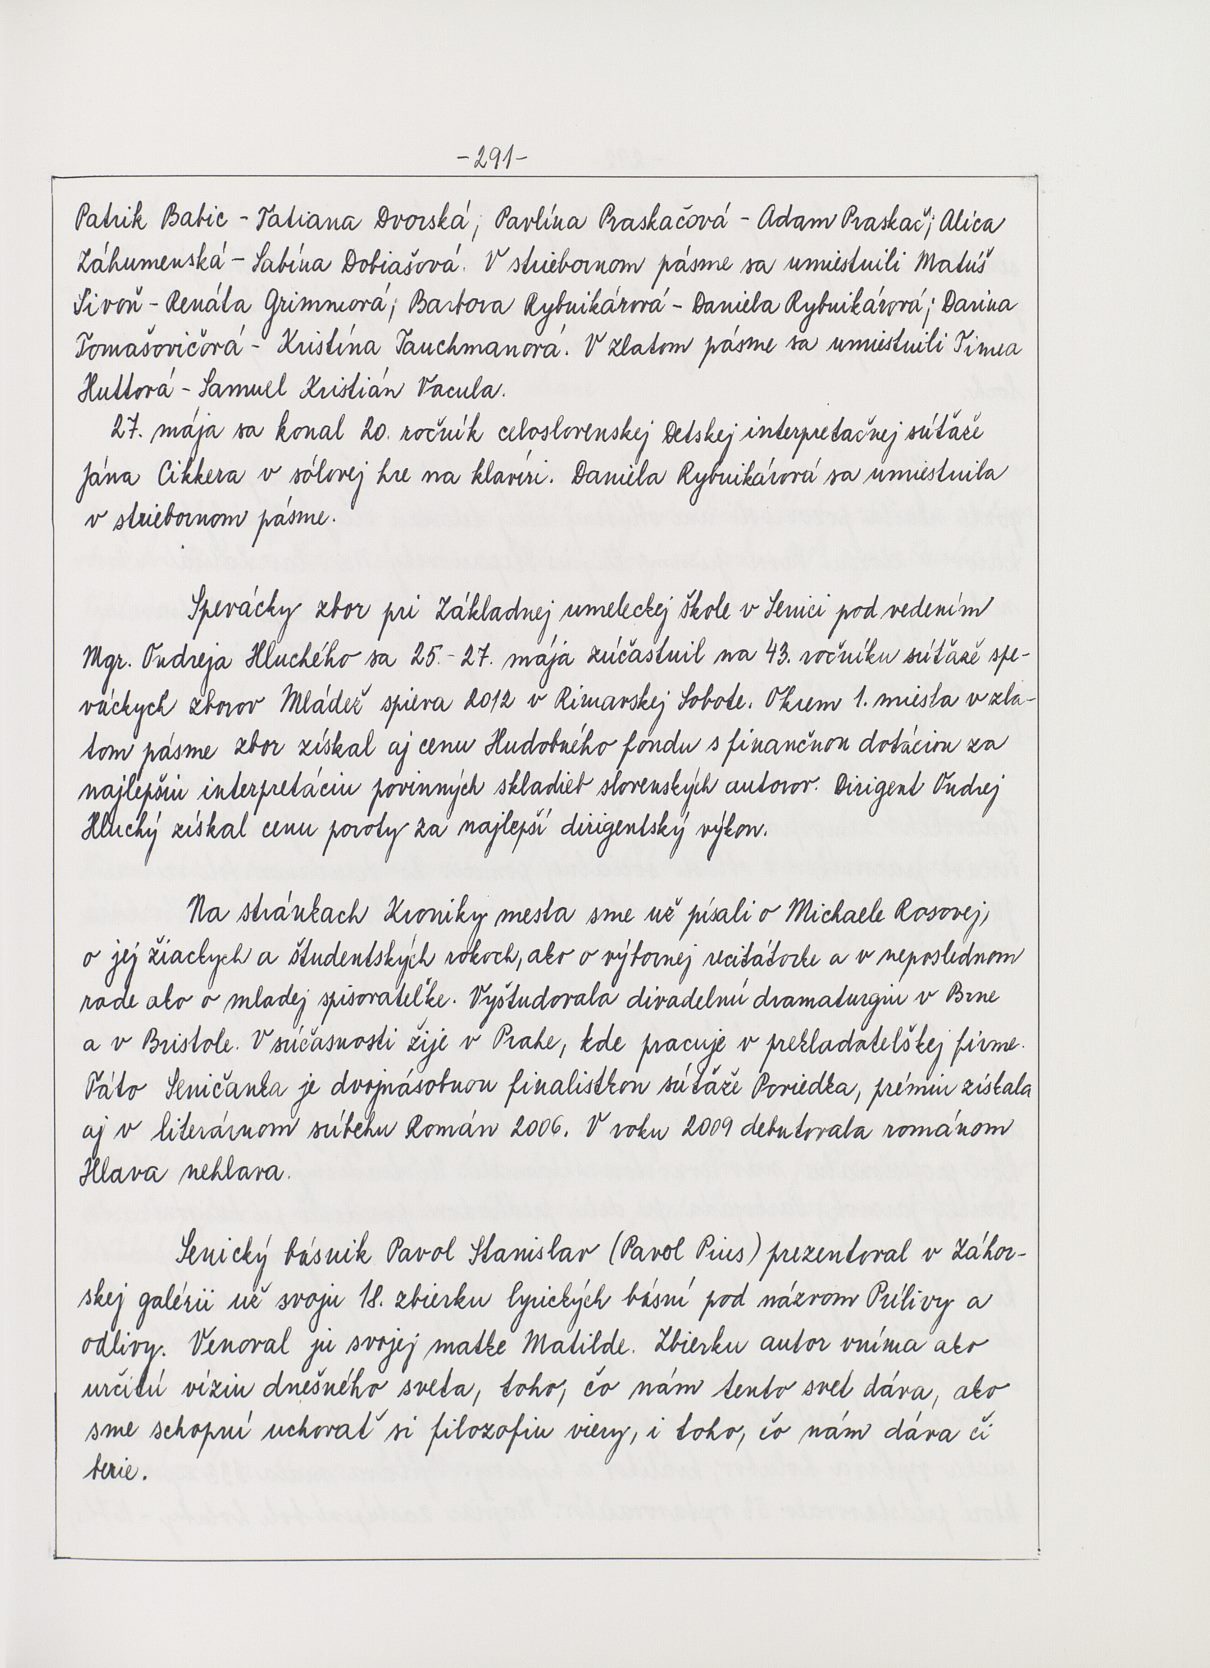 -291-
Patrik Babic - Tatiana Dvorská; Pavlína Praskačová - Adam Praskač; Alica
Záhumenská - Sabína Dobiašová. V striebornom pásme sa umiestnili Matúš
Sivoň - Renáta Grimmová; Barbora Rybnikárová - Daniela Rybnikárová; Darina
Tomašovičová - Kristína Tauchmanová. V zlatom pásme sa umiestnili Timea
Huttová - Samuel Kristián Vacula.
27. mája sa konal 20. ročník celoslovenskej Detskej interpretačnej súťaže
Jána Cikkera v sólovej hre na klavíri. Daniela Rybnikárová sa umiestnila
v striebornom pásme.
Spevácky zbor pri Základnej umeleckej škole v Senici pod vedením
Mgr. Ondreja Hluchého sa 25.-27. mája zúčastnil na 43. ročníku súťaže spe-
váckych zborov Mládež spieva 2012 v Rimavskej Sobote. Okrem 1. miesta v zla-
tom pásme zbor získal aj cenu Hudobného fondu s finančnou dotáciou za
najlepšiu interpretáciu povinných skladieb slovenských autorov. Dirigent Ondrej
Hluchý získal cenu poroty za najlepší dirigentský výkon.
Na stránkach Kroniky mesta sme už písali o Michaele Rosovej,
o jej žiackych a študentských rokoch, ako o výbornej recitátorke a v neposlednom
rade ako o mladej spisovateľke. Vyštudovala divadelnú dramaturgiu v Brne
a v Bristole. V súčasnosti žije v Prahe, kde pracuje v prekladateľskej firme.
Táto Seničanka je dvojnásobnou finalistkou súťaže Poviedka, prémiu získala
aj v literárnom súbehu Román 2006. V roku 2009 debutovala románom
Hlava nehlava.
Senický básnik Pavol Stanislav (Pavol Pius) prezentoval v Záhor-
skej galérii už svoju 18. zbierku lyrických básní pod názvom Prílivy a
odlivy. Venoval ju svojej matke Matilde. Zbierku autor vníma ako
určitú víziu dnešného sveta, toho, čo nám tento svet dáva, ako
sme schopní uchovať si filozofiu viery, i toho, čo nám dáva či
berie.